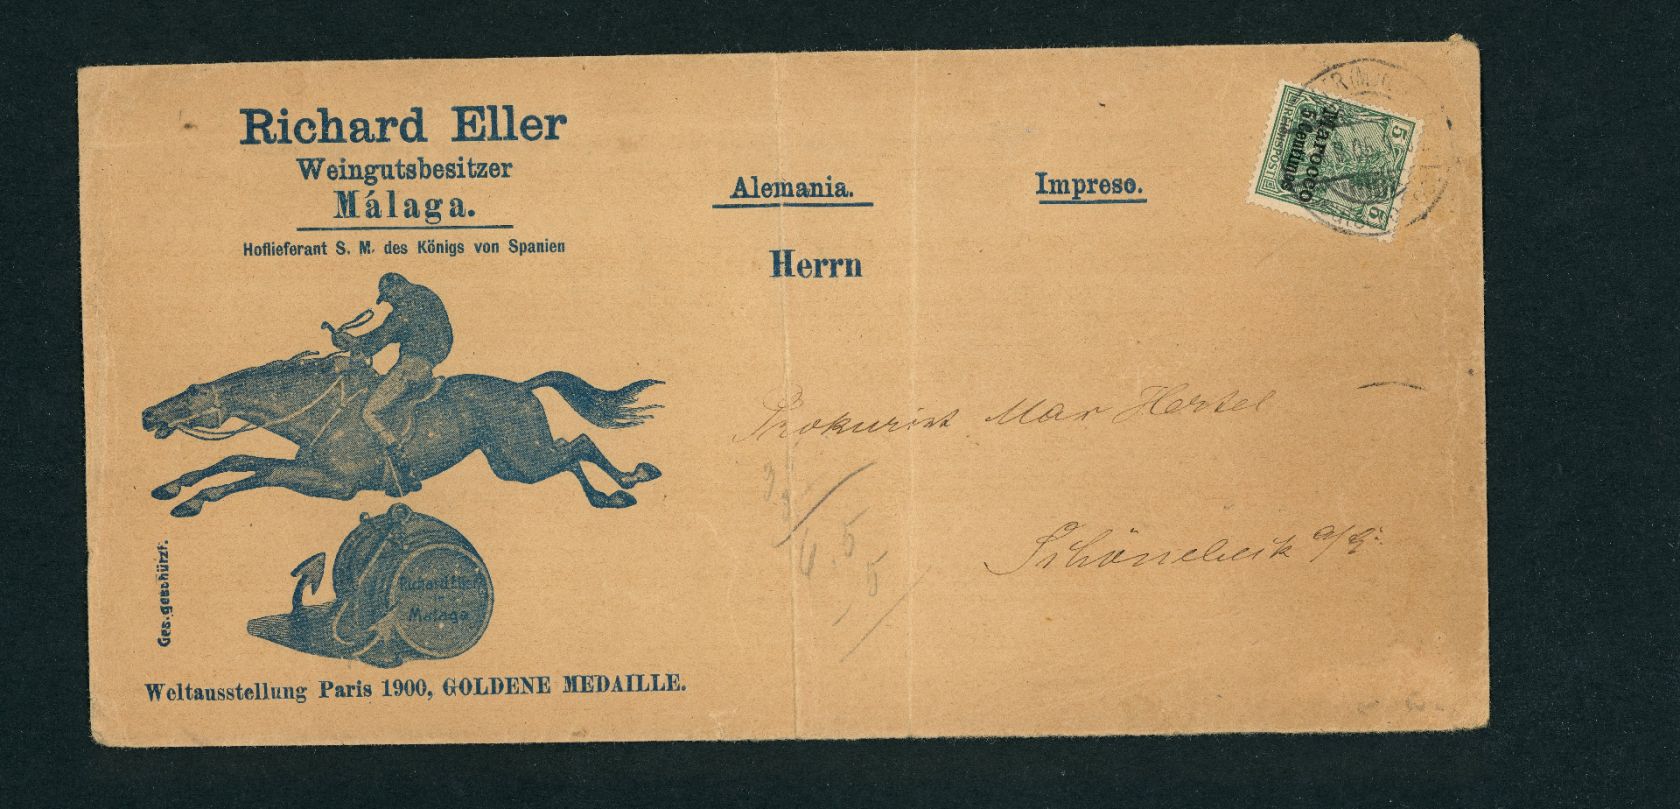 Richard Eller
Weingutsbesitzer
Málaga.
Hoflieferant S. M. des Königs von Spanien
Ges. geschürzt.
Richard Eller
Malaga
Weltausstellung Paris 1900, GOLDENE MEDAILLE.
Alemania.
Impreso.
Herrn
Prokurist Max Hertel
Schönebeck a/E.
Marocco
5 Centimos
REICHSPOST
5
5